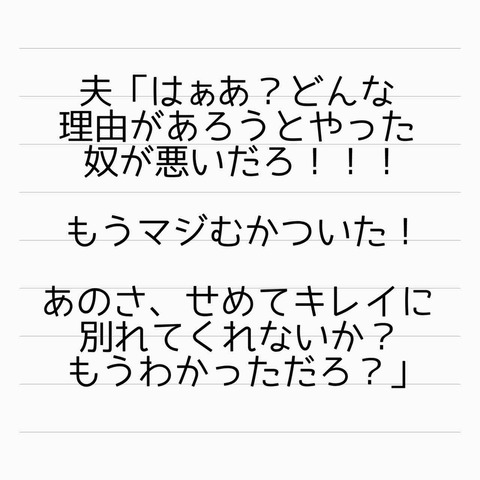 夫「はぁあ？どんな
理由があろうとやった
奴が悪いだろ！！！
もうマジむかついた！
あのさ、せめてキレイに
別れてくれないか？
もうわかっただろ？」